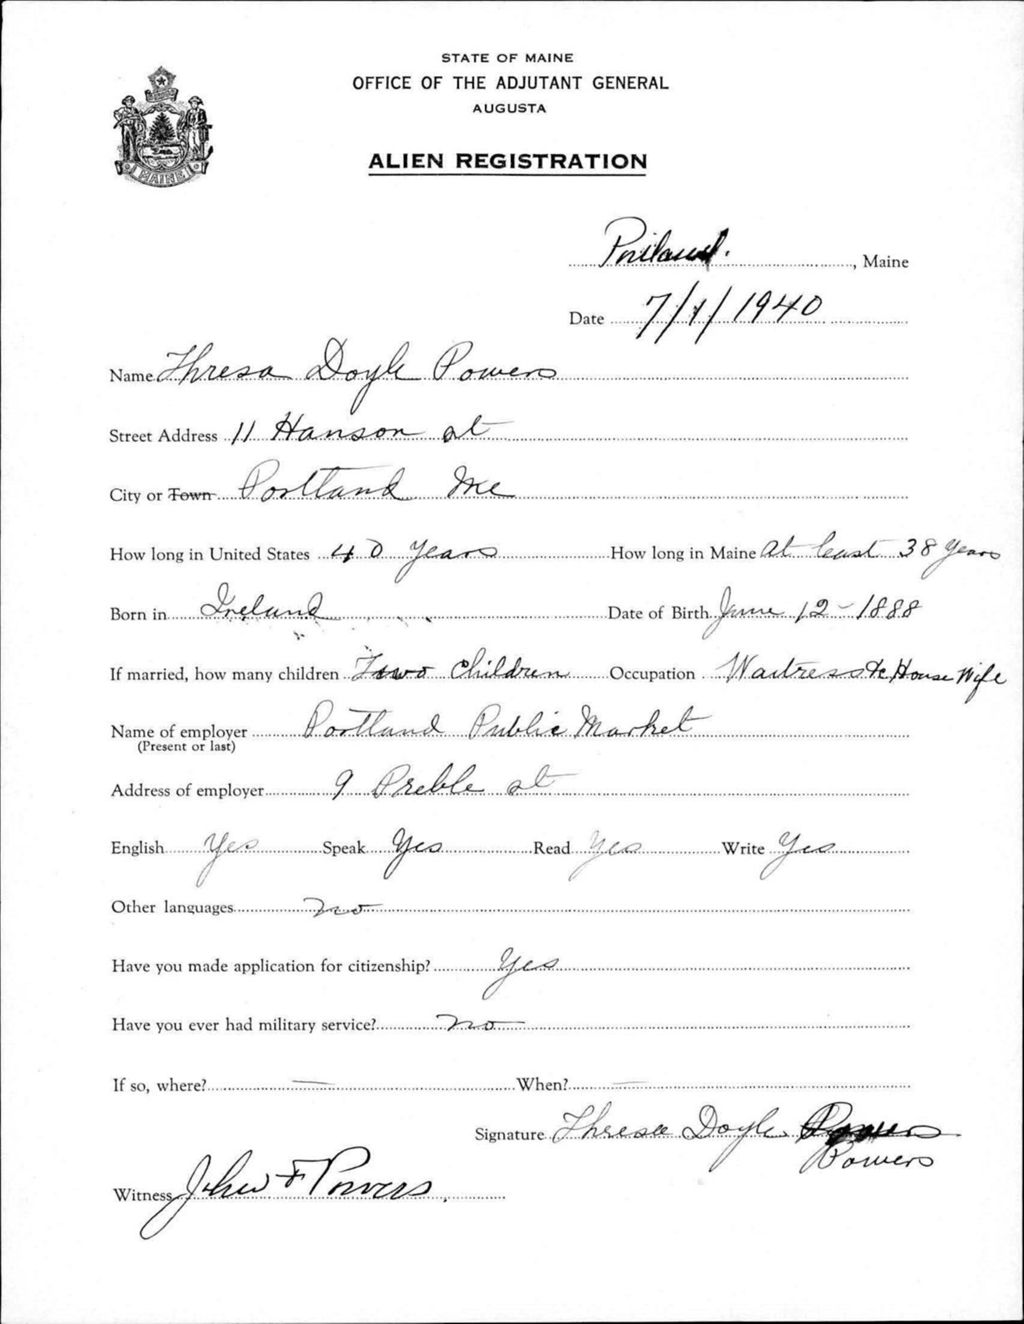 STATE OF MAINE
OFFICE OF THE ADJUTANT GENERAL
AUGUSTA
ALIEN REGISTRATION
MAINE
Portland., Maine
Date 7/1/1940
Name Thresa Doyle Powers
Street Address 11 Hanson st
City or Town Portland Me
How long in United States 40 Years How long in Maine At least 38 Years
Born in Ireland Date of Birth June 12-1888
If married, how many children Two Children Occupation Waitress & House Wife
Name of employer Portland Public Market
(Present or last)
Address of employer 9 Preble st
English Yes Speak Yes Read Yes Write Yes
Other languages no
Have you made application for citizenship? Yes
Have you ever had military service? no
If so, where? — When? —
Signature Thresa Doyle Powers
Powers
Witness John F Powers